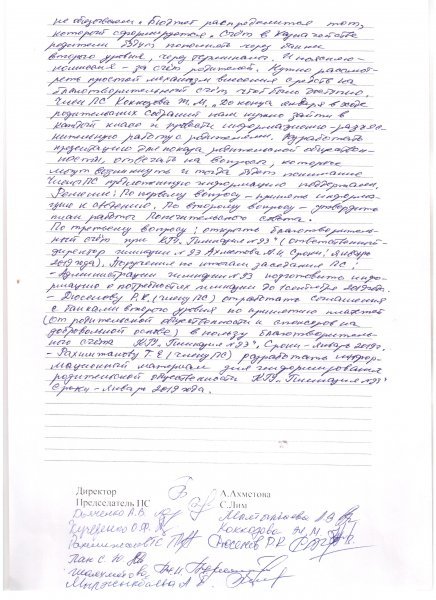 не обязательно. Бюджет распределится тот,
который сформируется. Счёт в казначействе
родители будут пополнять через банки
второго уровня, через терминалы. И наполно-
полнения – за счёт родителей. Нужно рассмот-
реть простой механизм внесения средств на
благотворительный счёт, чтоб было доступно.
Член ПС Коккозова Ж.М. „До конца января в ходе
родительских собраний нам нужно зайти в
каждый класс и провести информационно-разъяс-
нительную работу с родителями. Разработать
презентацию для показа родительской обществен-
ности, отвечать на вопросы, которые
могут возникнуть и тогда будет понимание
Члены ПС предложенную информацию поддержали.
Решение: По первому вопросу – принять информа-
цию к сведению. По второму вопросу – утвердить
план работы Попечительского совета.
По третьему вопросу: открыть благотворитель-
ный счёт при КГУ „Гимназия №93" (ответственный
директор гимназии №93 Ахметова А. Сроки: Январь
2019 года). Поручение по итогам заседания ПС:
- Администрации гимназии №93 подготовить инфо-
рмацию о потребностях гимназии до 10 января 2019 года.
- Дюсенову Р.К. (члену ПС) отработать соглашения
с банками второго уровня по принятию платежей
(от родительской общественности и спонсоров на
добровольной основе) в пользу благотворитель-
ного счёта КГУ „Гимназия №93". Сроки – Январь 2019г.
- Рахимжанову Т.Е (члену ПС) разработать инфор-
мационный материал для информирования
родительской общественности КГУ „Гимназия №93"
Сроки – Январь 2019 года.
Директор А.Ахметова
Председатель ПС С.Лим
Дьяченко А.В.
Кучеренко О.Ф. Коккозова Ж.М.
Рахимжанов Т.Е. Дюсенов Р.К.
Пан С.Ю.